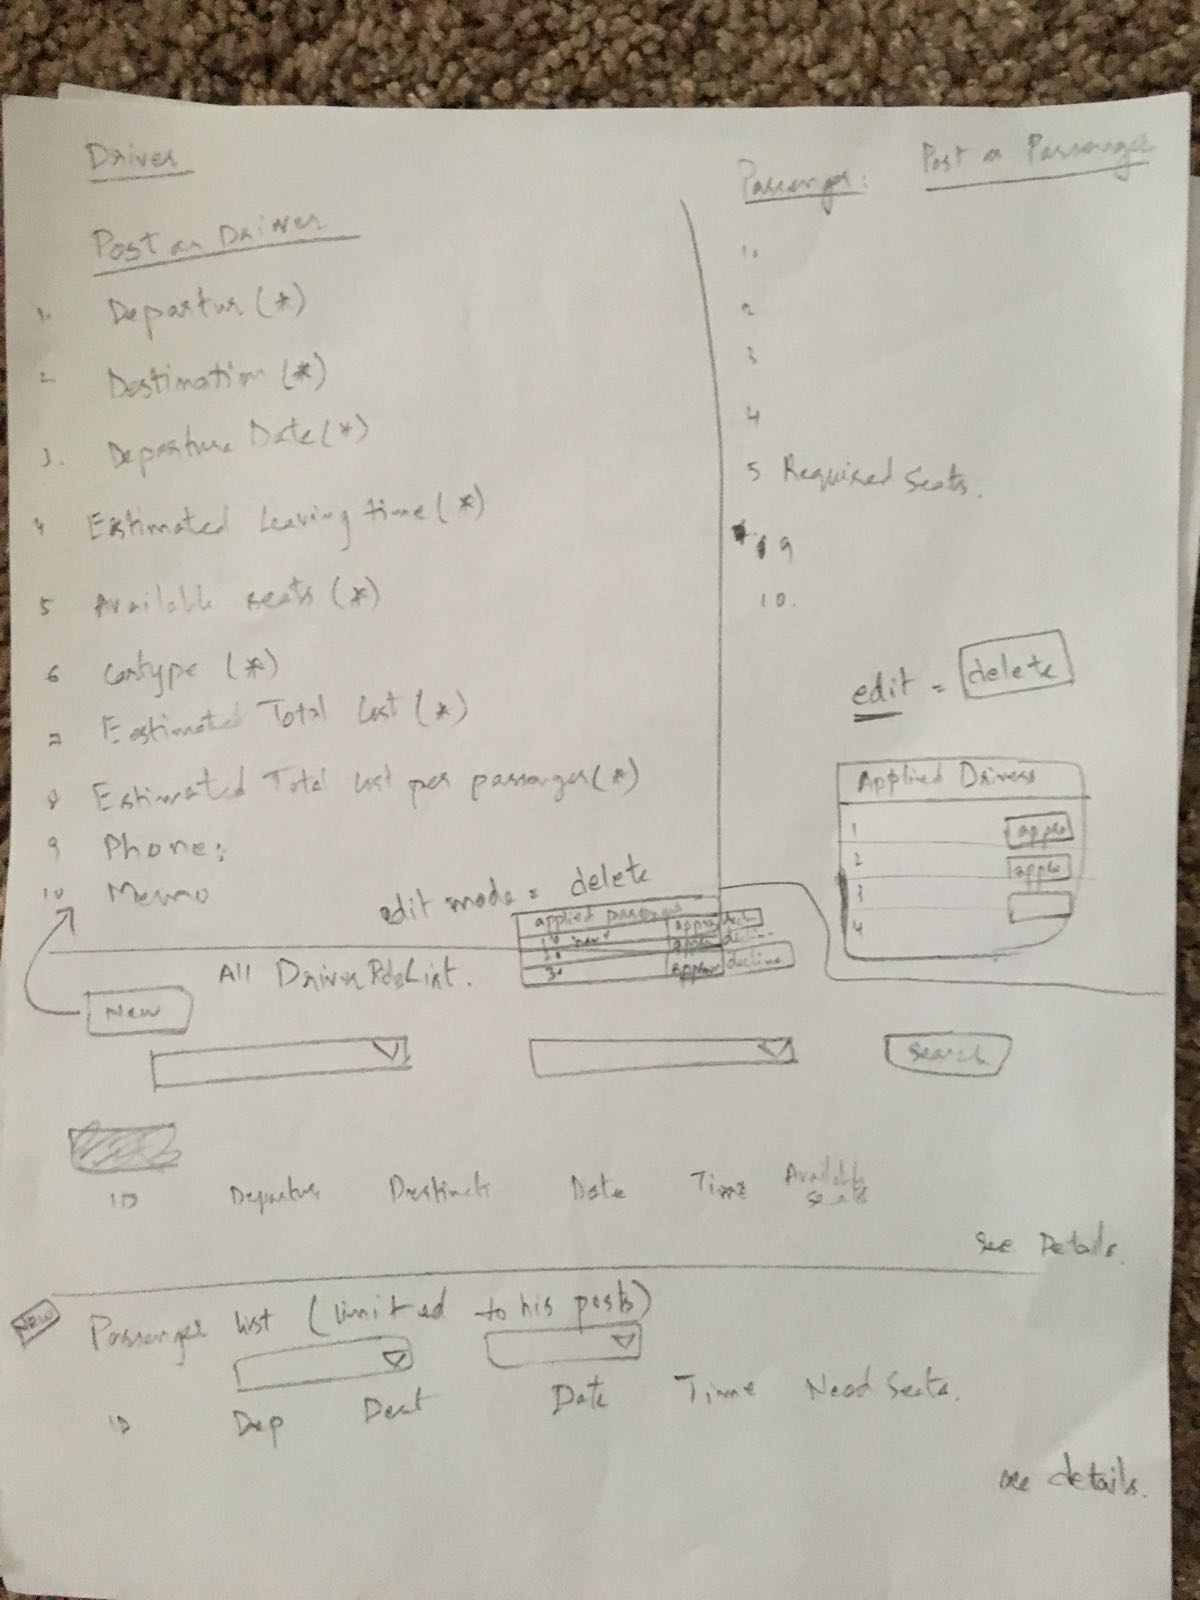 Driver
Post as Driver
1. Departur (*)
2 Destination (*)
3. Departure Date (*)
4 Estimated Leaving time (*)
5 Available seats (*)
6 Cartype (*)
7 Estimated Total Cost (*)
8 Estimated Total cost per passenger (*)
9 Phone:
10 Memo
edit mode = delete
applied passenger
1.
2.
3. decline
Passenger: Post a Passenger
1.
2
3
4
5 Required Seats.
9
10.
edit = delete
Applied Drivers
1
2
3
4
All Driver List.
New
Search
ID Departur Date Time Available seats
see Details.
New Passenger list (limited to his posts)
ID Dep Dest Date Time Need Seats.
see details.